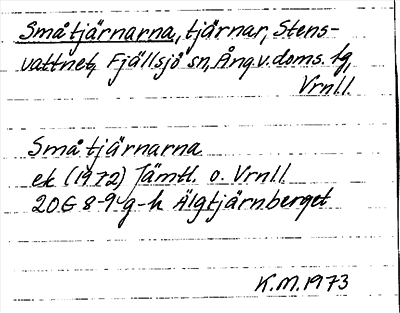 Småtjärnarna, tjärnar, Stens-
vattnet, Fjällsjö sn, Ång.v.doms. lg,
Vrnll.
Småtjärnarna
ek (1972) Jämtl. o. Vrnll.
20G 8-9 g-h Älgtjärnberget
K.M. 1973